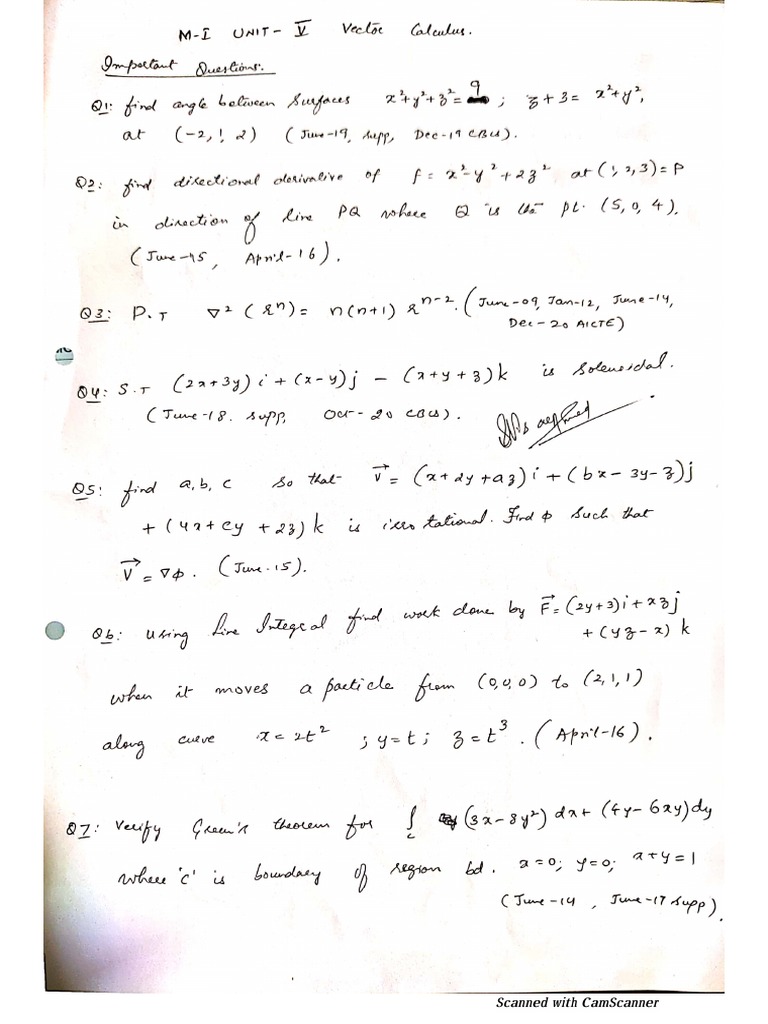 M-I UNIT- V Vector Calculus.
Important Questions:
Q1: find angle between surfaces x²+y²+z²= 9 ; z+3= x²+y²,
at (-2, 1, 2) (June-19, supp, Dec-19 CBCS).
Q2: find directional derivative of f= x²-y²+2z² at (1,2,3)=P
in direction of line PQ where Q is the pt. (5,0,4).
(June-15, April-16).
Q3: P.T ∇² (rⁿ)= n(n+1) rⁿ⁻². (June-09, Jan-12, June-14,
Dec-20 AICTE)
Q4: S.T (2x+3y)i+(x-y)j - (x+y+z)k is solenoidal.
(June-18. supp, Oct-20 CBCS).
Q5: find a,b,c so that V⃗= (x+2y+az)i+(bx-3y-z)j
+(4x+cy+2z)k is irrotational. Find ϕ such that
V⃗=∇ϕ. (June-15).
Q6: using Line Integral find work done by F⃗=(2y+3)i+xzj
+(yz-x)k
when it moves a particle from (0,0,0) to (2,1,1)
along curve x=2t² ; y=t; z=t³. (April-16).
Q7: Verify Green's theorem for ∫c (3x-8y²)dx+(4y-6xy)dy
where 'c' is boundary of region bd. x=0; y=0; x+y=1
(June-14, June-17 supp).
Scanned with CamScanner